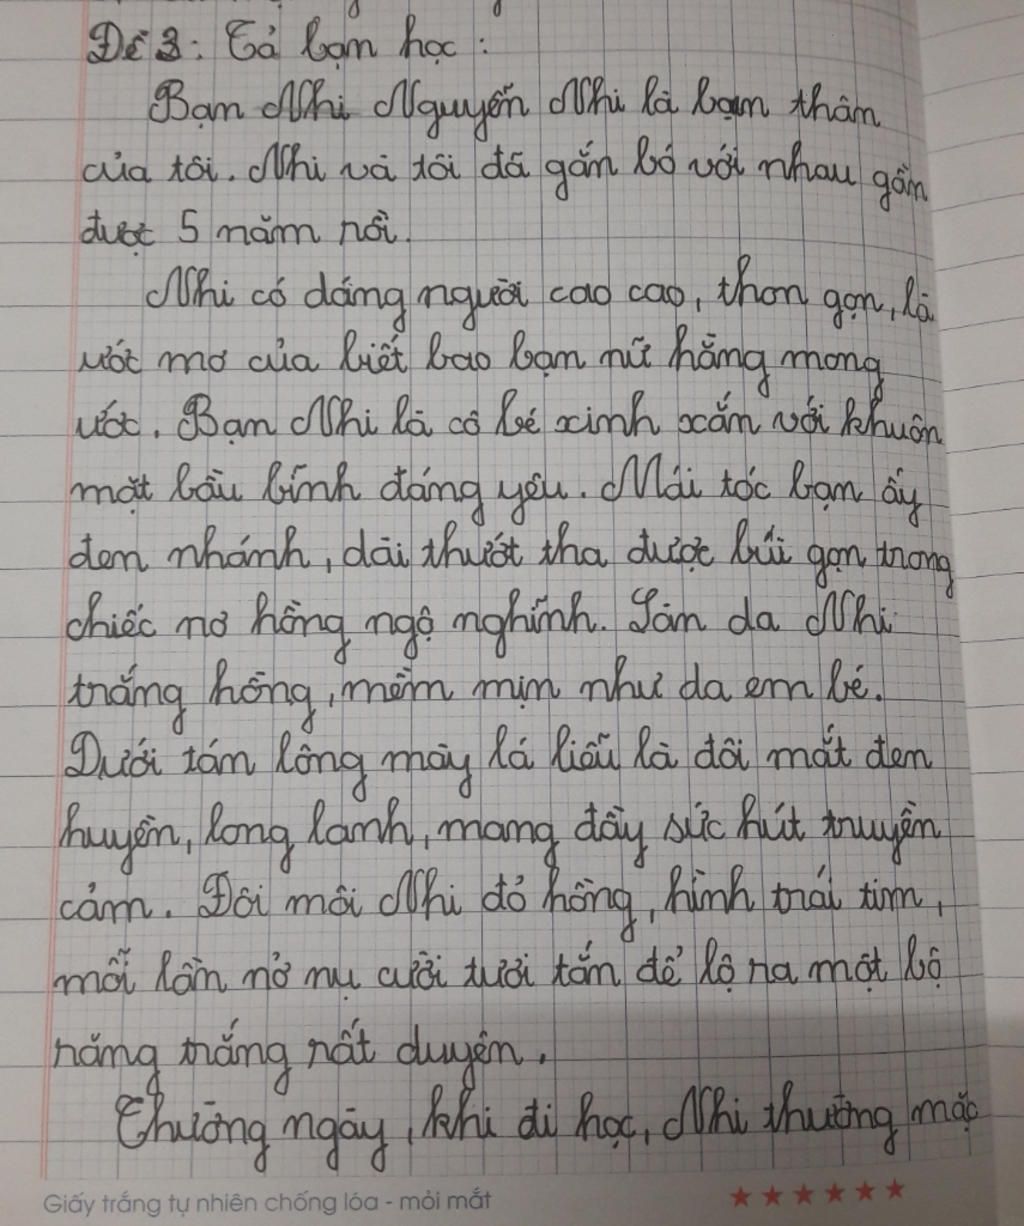 Đề 3: Tả bạn học :
Bạn Nhi Nguyên Nhi là bạn thân
của tôi. Nhi và tôi đã gắn bó với nhau gần
được 5 năm rồi.
Nhi có dáng người cao cao, thon gọn, là
ước mơ của biết bao bạn nữ hằng mong
ước. Bạn Nhi là cô bé xinh xắn với khuôn
mặt bầu bĩnh đáng yêu. Mái tóc bạn ấy
đen nhánh, dài thướt tha được búi gọn trong
chiếc nơ hồng ngộ nghĩnh. Làn da Nhi
trắng hồng, mềm mịn như da em bé.
Dưới tán lông mày lá liễu là đôi mắt đen
huyền, long lanh, mang đầy sức hút truyền
cảm. Đôi môi Nhi đỏ hồng, hình trái tim,
mỗi lần nở nụ cười tươi tắn để lộ ra một bộ
răng trắng rất duyên.
Thường ngày, khi đi học, Nhi thường mặc
Giấy trắng tự nhiên chống lóa - mỏi mắt